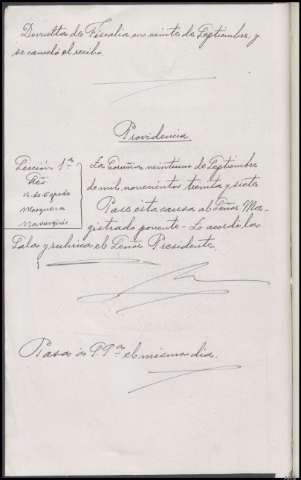 Devuelta de Fiscalia en veinte de Septiembre y
se canceló el recibo
Providencia.
Sección 1ª
La Coruña veintiuno de Septiembre
de mil novecientos treinta y siete
Mosquera
Pase esta causa al Señor Ma-
gistrado ponente - Lo acordó la
Sala y rubrica el Señor Presidente.
Pasa á el mismo dia.